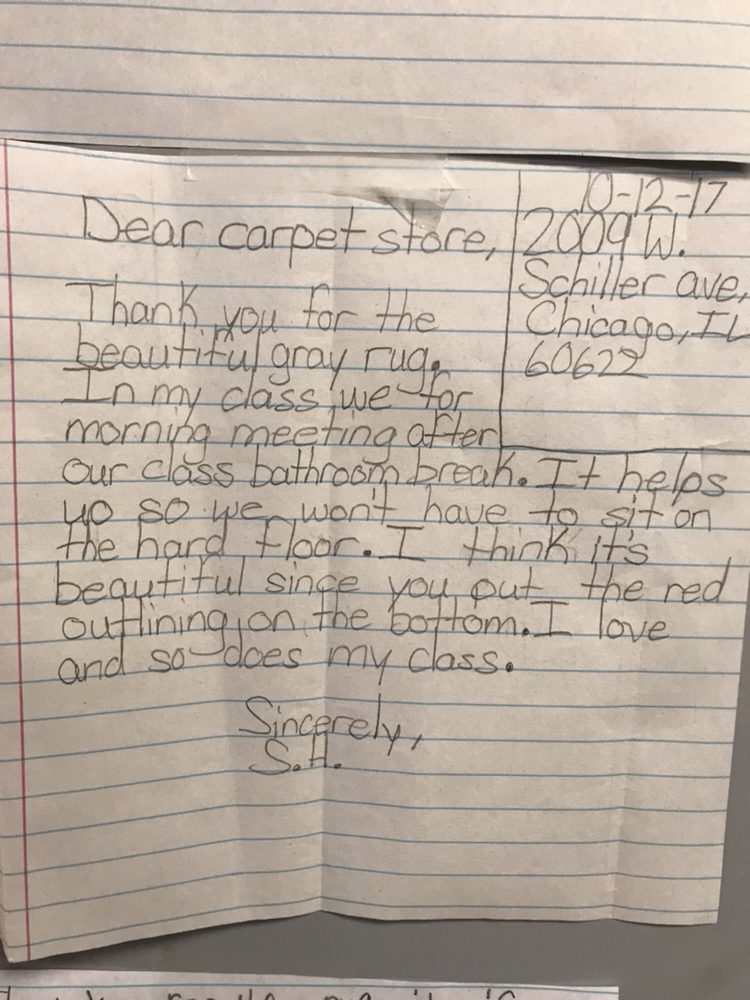 10-12-17
Dear carpet store,
2009 W.
Schiller ave,
Chicago, IL
60622
Thank you for the
beautiful gray rug.
In my class we for
morning meeting after
our class bathroom break. It helps
up so we won't have to sit on
the hard floor. I think it's
beautiful since you put the red
outlining on the bottom. I love
and so does my class.
Sincerely,
S.H.